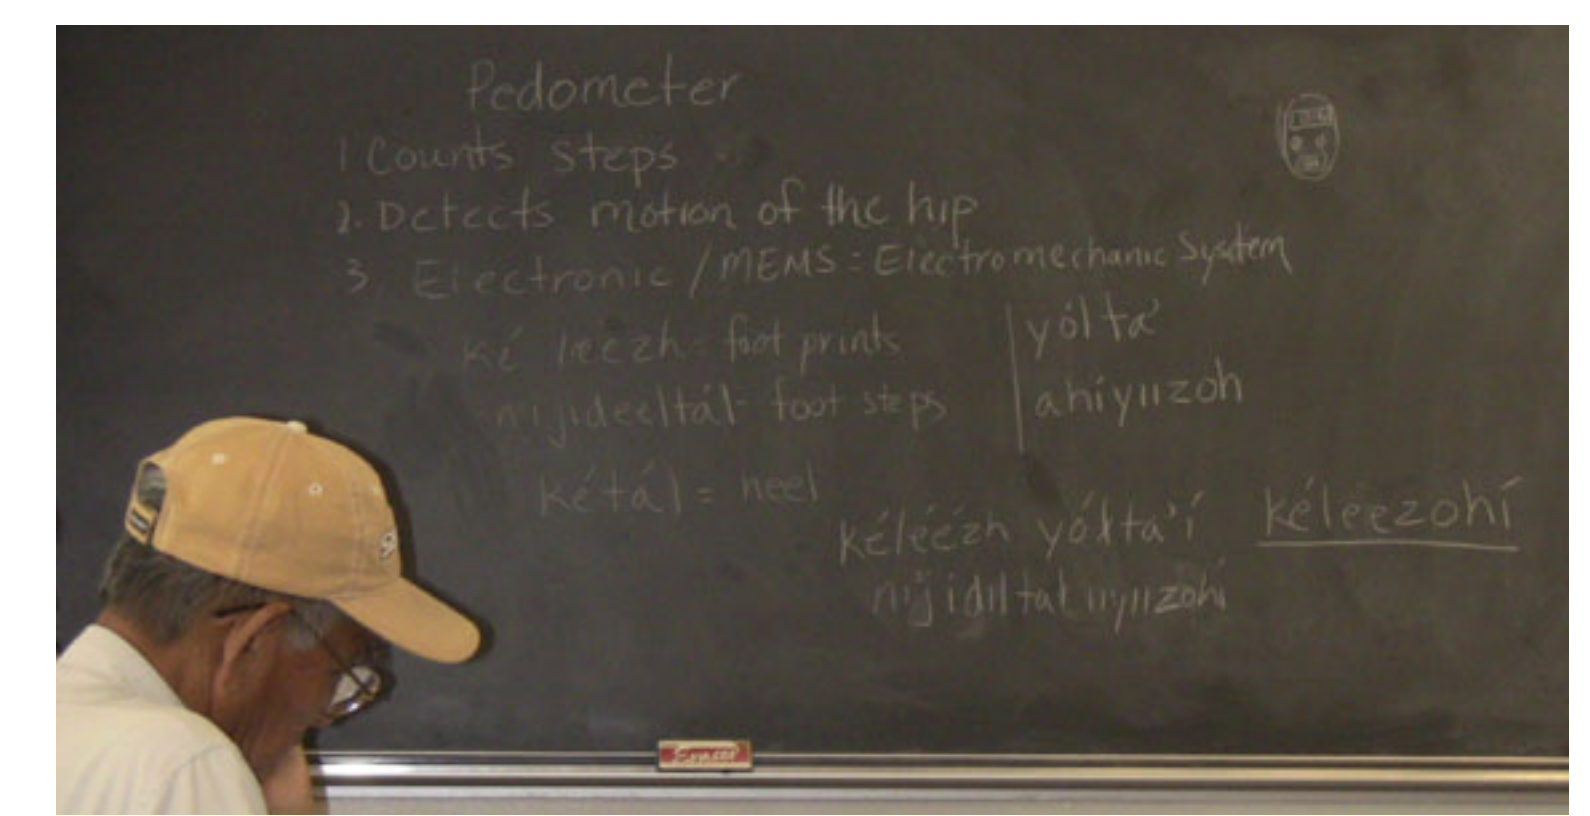 Pedometer
1 Counts steps
2. Detects motion of the hip
3. Electronic / MEMS = Electromechanic System
ké leezh = foot prints
nijideeltál = foot steps
kétál = heel
yólta'
ahíyiizoh
kéléézh yółta'í
nijidiltał iiyiizohí
kéleezohí